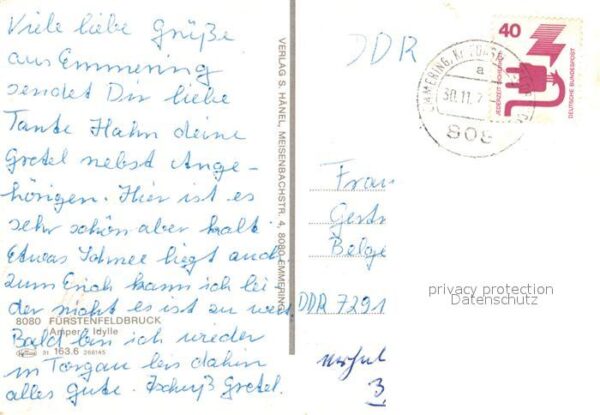 Viele liebe Grüße
aus Emmering
sendet Dir liebe
Tante Hahn deine
Gretel nebst Ange-
hörigen. Hier ist es
sehr schön aber kalt.
Etwas Schnee liegt auch
zum Erich kann ich lei
der nicht es ist zu weit
Bald bin ich wieder
in Torgau bis dahin
alles gute. Tschuß Gretel.
8080 FÜRSTENFELDBRUCK
Amper - Idylle
31 163.6 266145
VERLAG S. HÄNEL, MEISENBACHSTR. 4, 8080 EMMERING
DDR
40
JEDERZEIT SICHERHEIT
DEUTSCHE BUNDESPOST
EMMERING, Kr
a
30.11.7
808
Frau
Gertr
Belge
DDR 7291
privacy protection
Datenschutz
3